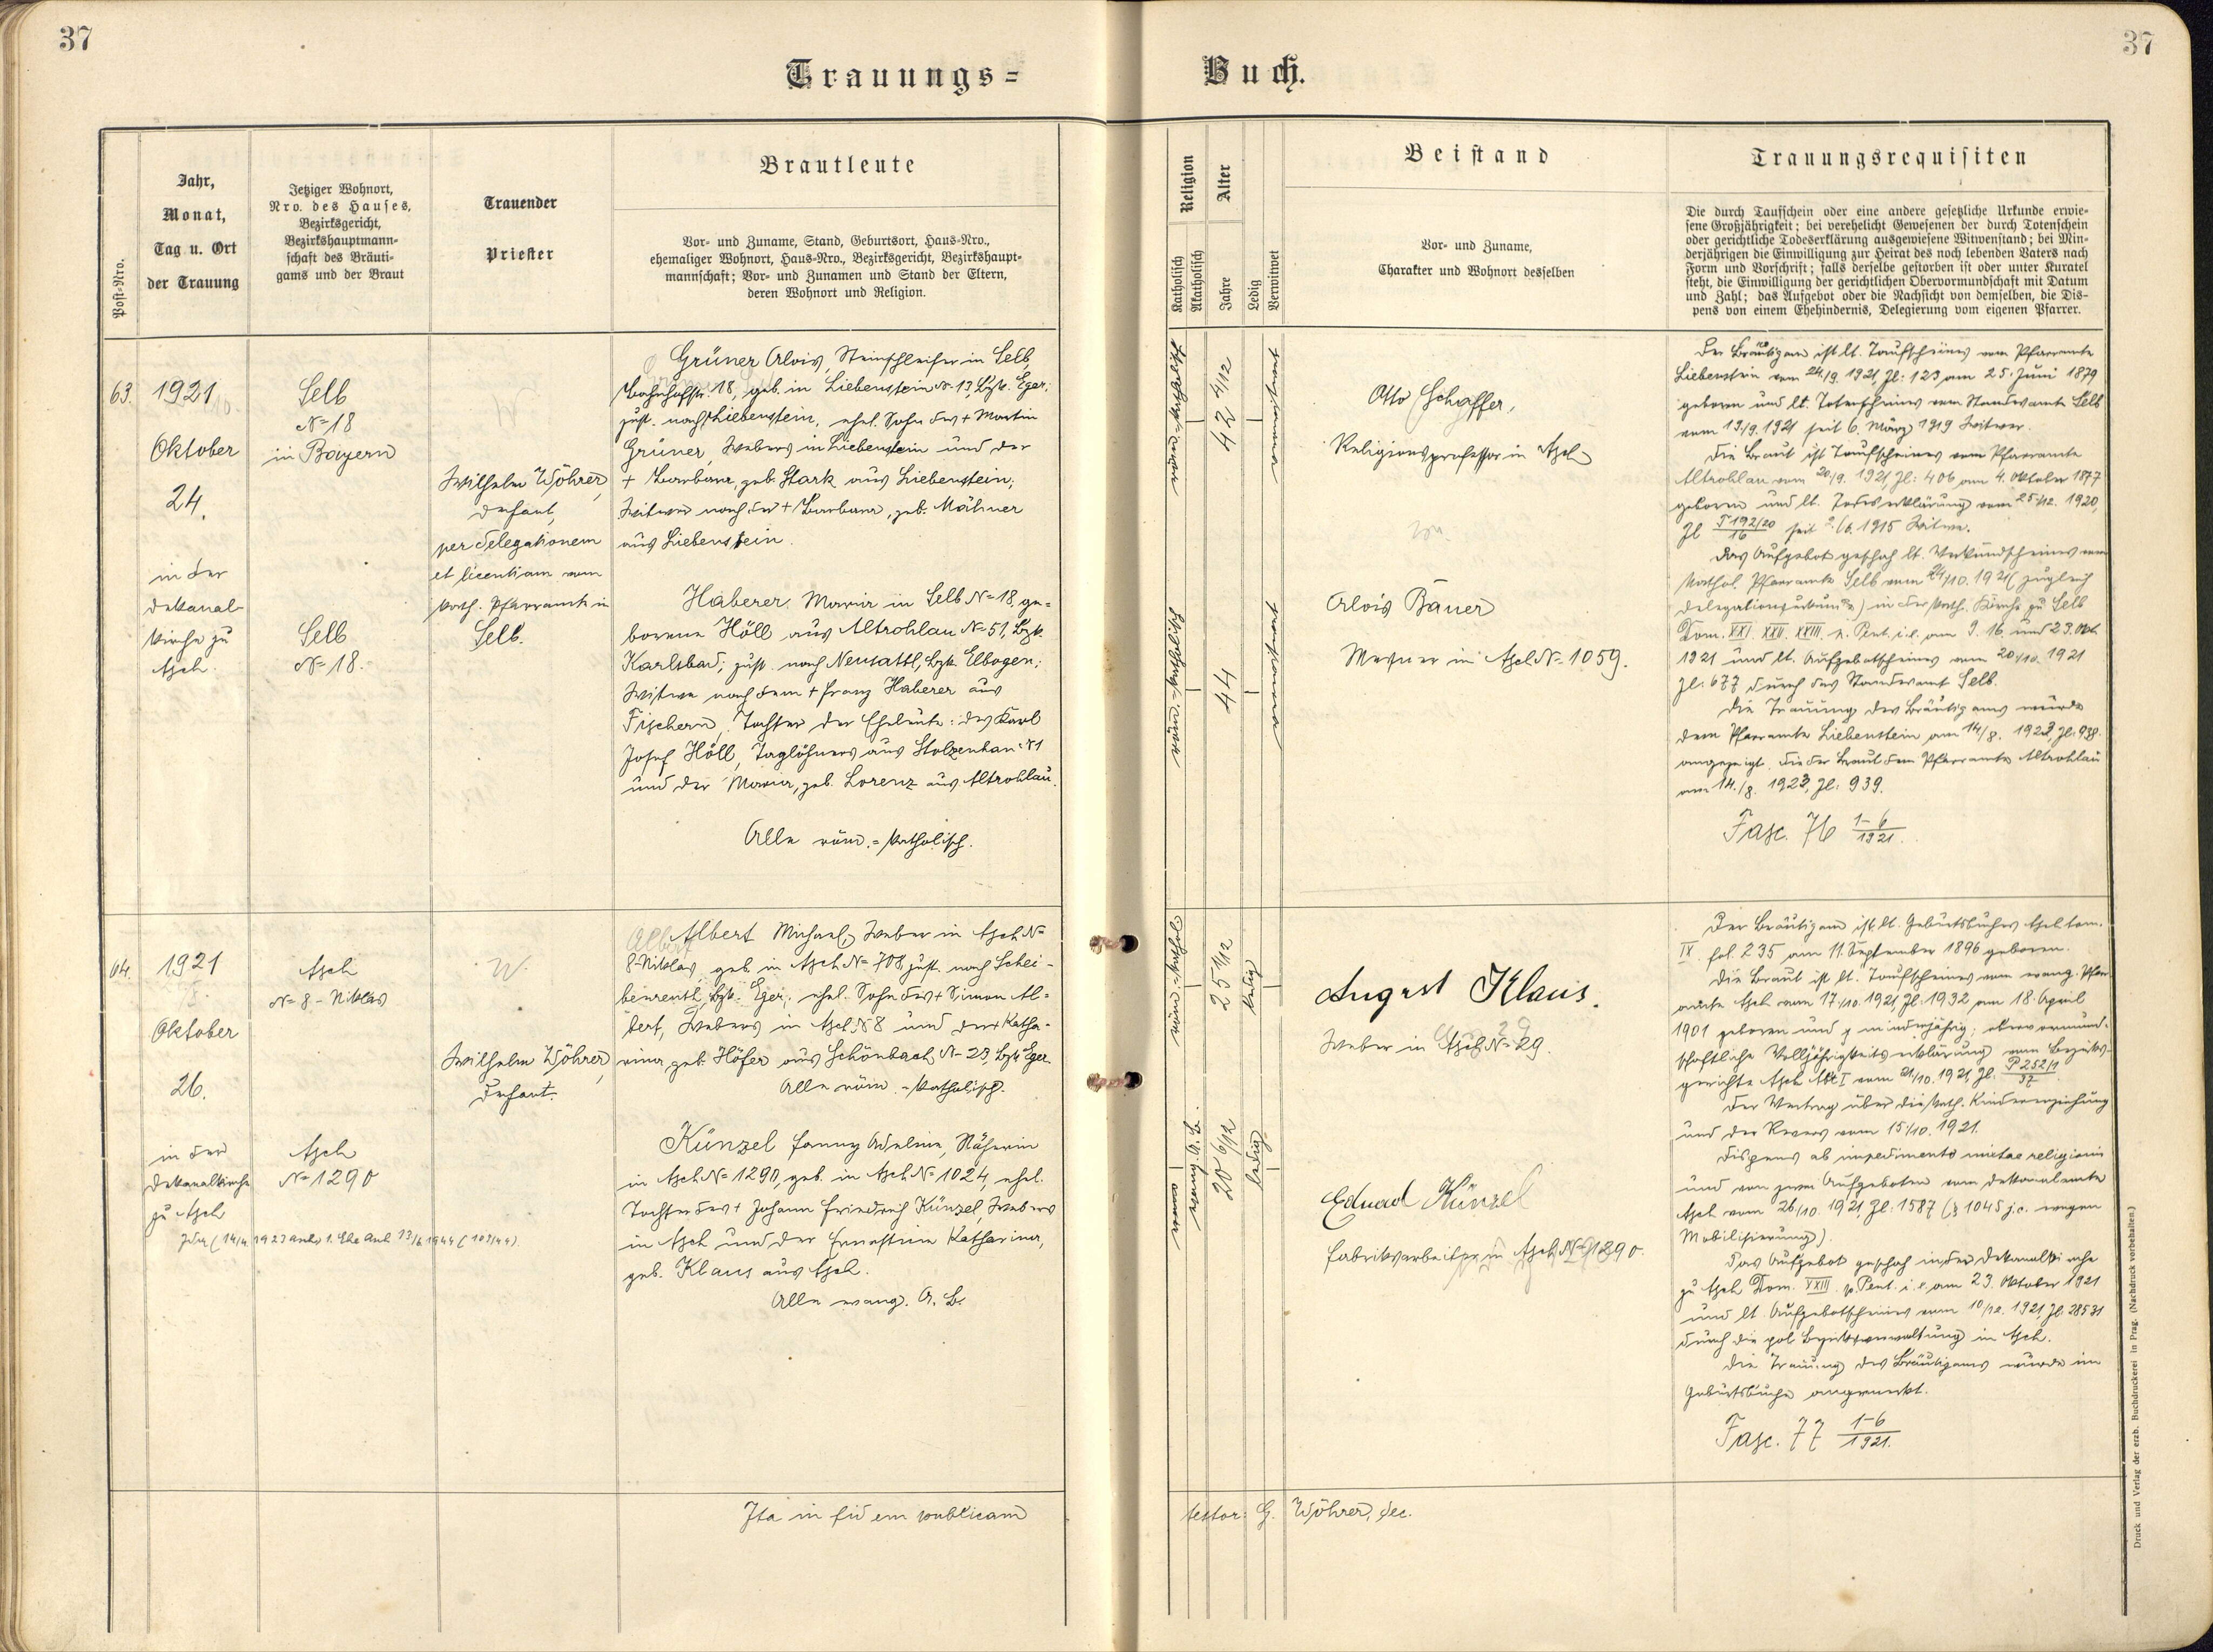 37
37
Trauungs=
Buch.
Post-Nro.
Jahr,
Monat,
Tag u. Ort
der Trauung
Jetziger Wohnort,
Nro. des Hauses,
Bezirksgericht,
Bezirkshauptmann-
schaft des Bräuti-
gams und der Braut
Trauender
Priester
Brautleute
Vor- und Zuname, Stand, Geburtsort, Haus-Nro.,
ehemaliger Wohnort, Haus-Nro., Bezirksgericht, Bezirkshaupt-
mannschaft; Vor- und Zunamen und Stand der Eltern,
deren Wohnort und Religion.
Religion
Katholisch
Akatholisch
Alter
Jahre
Ledig
Verwitwet
Beistand
Vor- und Zuname,
Charakter und Wohnort desselben
Trauungsrequisiten
Die durch Taufschein oder eine andere gesetzliche Urkunde erwie-
sene Großjährigkeit; bei verehelicht Gewesenen der durch Totenschein
oder gerichtliche Todeserklärung ausgewiesene Witwenstand; bei Min-
derjährigen die Einwilligung zur Heirat des noch lebenden Vaters nach
Form und Vorschrift; falls derselbe gestorben ist oder unter Kuratel
steht, die Einwilligung der gerichtlichen Obervormundschaft mit Datum
und Zahl; das Aufgebot oder die Nachsicht von demselben, die Dis-
pens von einem Ehehindernis, Delegierung vom eigenen Pfarrer.
63.
1921
Oktober
24.
in der
Dekanal-
kirche zu
Asch.
Selb
N=18
in Bayern
Selb
N=18.
Wilhelm Wöhrer,
Dechant,
per delegationem
et licentiam vom
kath. Pfarramte in
Selb.
Grüner Alois, Steinschleifer in Selb,
Bahnhofstr. 18, geb. in Liebenstein N-13, Bzk. Eger;
zust. nach Liebenstein, ehel. Sohn des + Martin
Grüner, Webers in Liebenstein und der
+ Barbara, geb. Stark aus Liebenstein;
Witwer nach der + Barbara, geb. Mähner
aus Liebenstein.
Haberer Maria in Selb N=18, ge-
borene Höll aus Altrohlau N=51, Bzk.
Karlsbad; zust. nach Neusattl, Bzk. Elbogen;
Witwe nach dem + Franz Haberer aus
Fischern, Tochter der Eheleute: des Karl
Josef Höll, Taglöhners aus Stolzenhan N1
und der Maria, geb. Lorenz aus Altrohlau.
Alle röm.=katholisch.
röm.-katholisch
42 4/12
verwitwet
röm.-katholisch
44
verwitwet
Otto Schaffer,
Religionsprofessor in Asch
Alois Bauer
Mesner in Asch N=1059.
Der Bräutigam ist lt. Taufscheines vom Pfarramte
Liebenstein vom 24./9. 1921, Zl: 123 am 25. Juni 1879
geboren und lt. Totenscheines vom Standesamte Selb
vom 19/9. 1921 seit 6. März 1919 Witwer.
Die Braut ist Taufscheines vom Pfarramte
Altrohlau vom 20/9. 1921, Zl: 406 am 4. Oktober 1877
geboren und lt. Todeserklärung vom 25/12. 1920,
Zl T 192/20 / 16 seit 2./6. 1915 Witwe.
Das Aufgebot geschah lt. Verkündscheines vom
kathol. Pfarramte Selb vom 24/10. 1921 (zugleich
Delegationsurkunde) in der kath. Kirche zu Selb
Dom. XXI. XXII. XXIII. p. Pent. i.e. am 9. 16. und 23. Okt.
1921 und lt. Aufgebotscheines vom 20/10. 1921
Zl: 677 durch das Standesamt Selb.
Die Trauung des Bräutigams wurde
dem Pfarramte Liebenstein am 14/8. 1923, Zl: 938.
angezeigt, die der Braut dem Pfarramte Altrohlau
am 14./8. 1923, Zl: 939.
Fasc. 76 1-6/1921.
64.
1921
Oktober
26.
in der
Dekanalkirche
zu Asch
Asch
N=8-Niklas
Asch
N=1290
Wilhelm Wöhrer,
Dechant.
Albert
Albert Michael, Weber in Asch N=
8-Niklas, geb. in Asch N=708, zust. nach Schei-
benreuth, Bzk. Eger; ehel. Sohn des + Simon Al-
bert, Webers in Asch N8 und der + Katha-
rina geb. Höfer aus Schönbach N-23, Bzk Eger.
Alle röm.-katholisch.
Künzel Fanny Adeline, Näherin
in Asch N=1290, geb. in Asch N=1024, ehel.
Tochter des + Johann Friedrich Künzel, Webers
in Asch und der Ernestine Katharina,
geb. Klaus aus Asch.
Alle evang. A. B.
röm.-kathol.
25 1/12
ledig
evang. A. B.
20 6/12
ledig
August Klaus.
Weber in Asch N=29.
Eduard Künzel
Fabrikarbeiter in Asch N=1290.
Der Bräutigam ist lt. Geburtsbuches Asch tom.
IX. fol. 235 am 11. September 1896 geboren.
Die Braut ist lt. Taufscheines vom evang. Pfarr-
amte Asch vom 17./10. 1921 Zl: 1932 am 18. April
1901 geboren und minderjährig; obervormund-
schaftliche Volljährigkeitserklärung vom Bezirks-
gerichte Asch Abt I vom 21/10. 1921, Zl. P 252/1 / 37.
Der Vertrag über die kath. Kindererziehung
und der Revers vom 15/10. 1921.
Dispens ab impedimento mixtae religionis
und von zwei Aufgeboten vom Dekanalamte
Asch vom 26/10. 1921, Zl: 1587 (§ 1045 j.c. wegen
Mobilisierung).
Das Aufgebot geschah in der Dekanalkirche
zu Asch Dom. XXIII. p. Pent. i.e. am 23. Oktober 1921
und lt. Aufgebotscheines vom 1921, Zl: 28531
durch die pol. Bezirksverwaltung in Asch.
Die Trauung des Bräutigams wurde im
Geburtsbuche angemerkt.
Fasc. 77 1-6/1921.
Ita in fidem publicam
testor: G. Wöhrer, dec.
Druck und Verlag der erzb. Buchdruckerei in Prag. (Nachdruck vorbehalten.)